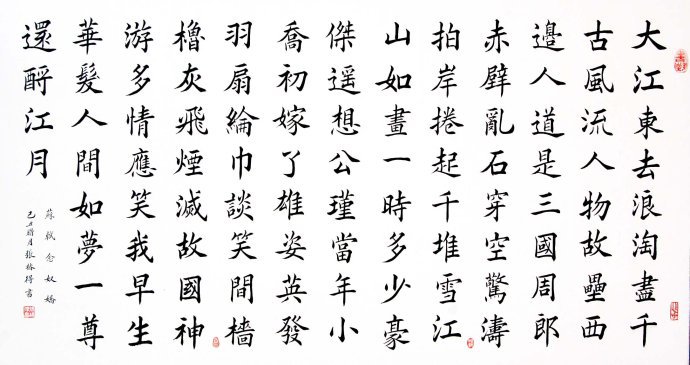 大江東去浪淘盡千
古風流人物故壘西
邊人道是三國周郎
赤壁亂石穿空驚濤
拍岸捲起千堆雪江
山如畫一時多少豪
傑遥想公瑾當年小
喬初嫁了雄姿英發
羽扇綸巾談笑間檣
櫓灰飛煙滅故國神
游多情應笑我早生
華髮人間如夢一尊
還酹江月
蘇軾念奴嬌
己丑腊月張